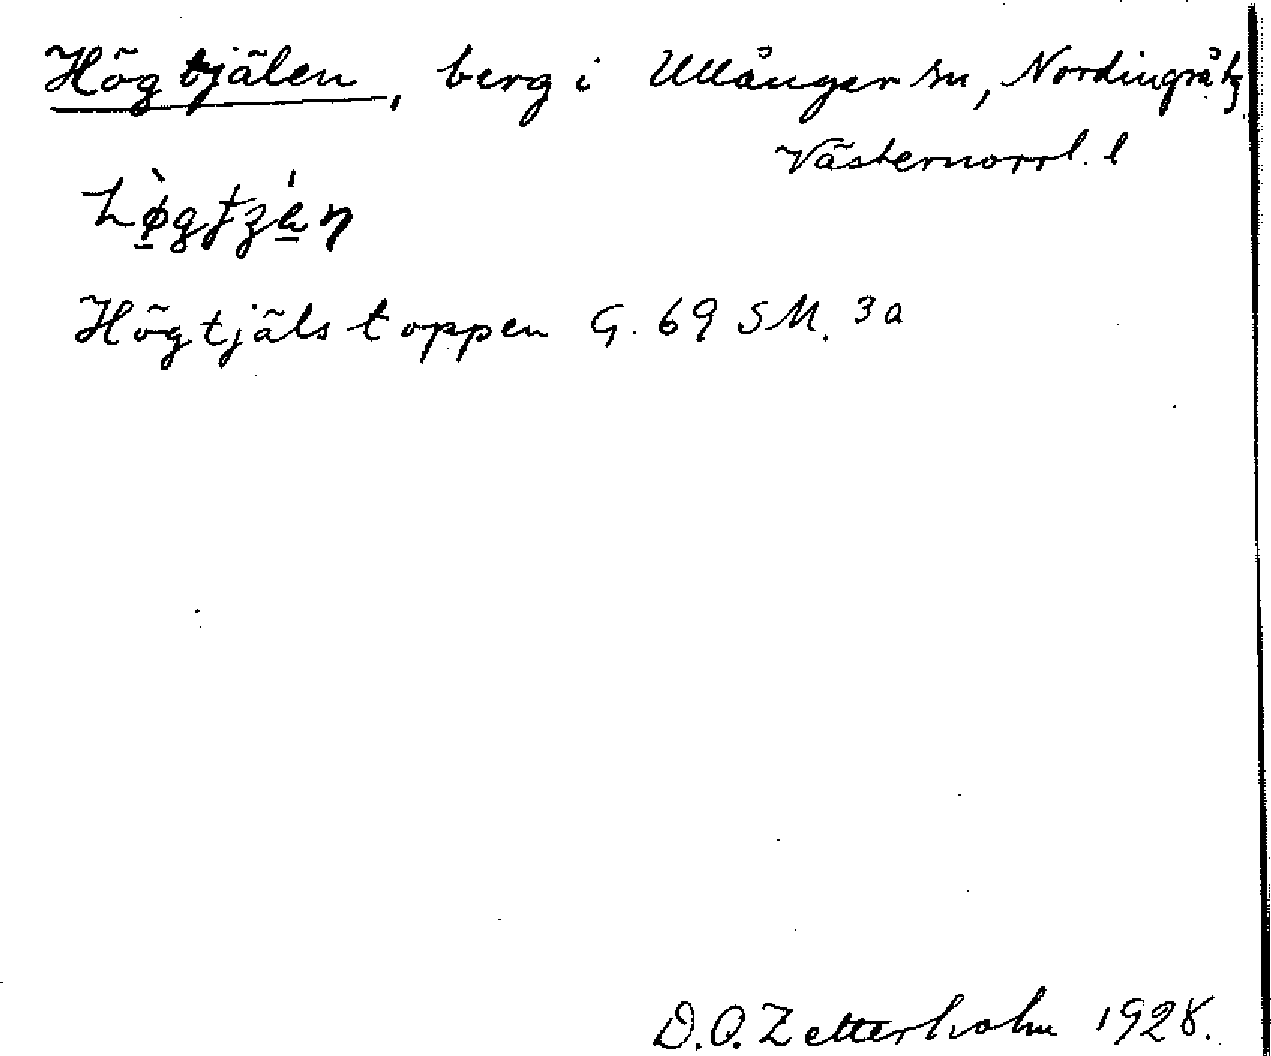 Högtjälen, berg i Ullånger sn, Nordingrå tg
Västernorrl. l
Högtjälstoppen G. 69 SM. 3a
D.O. Zetterholm 1928.